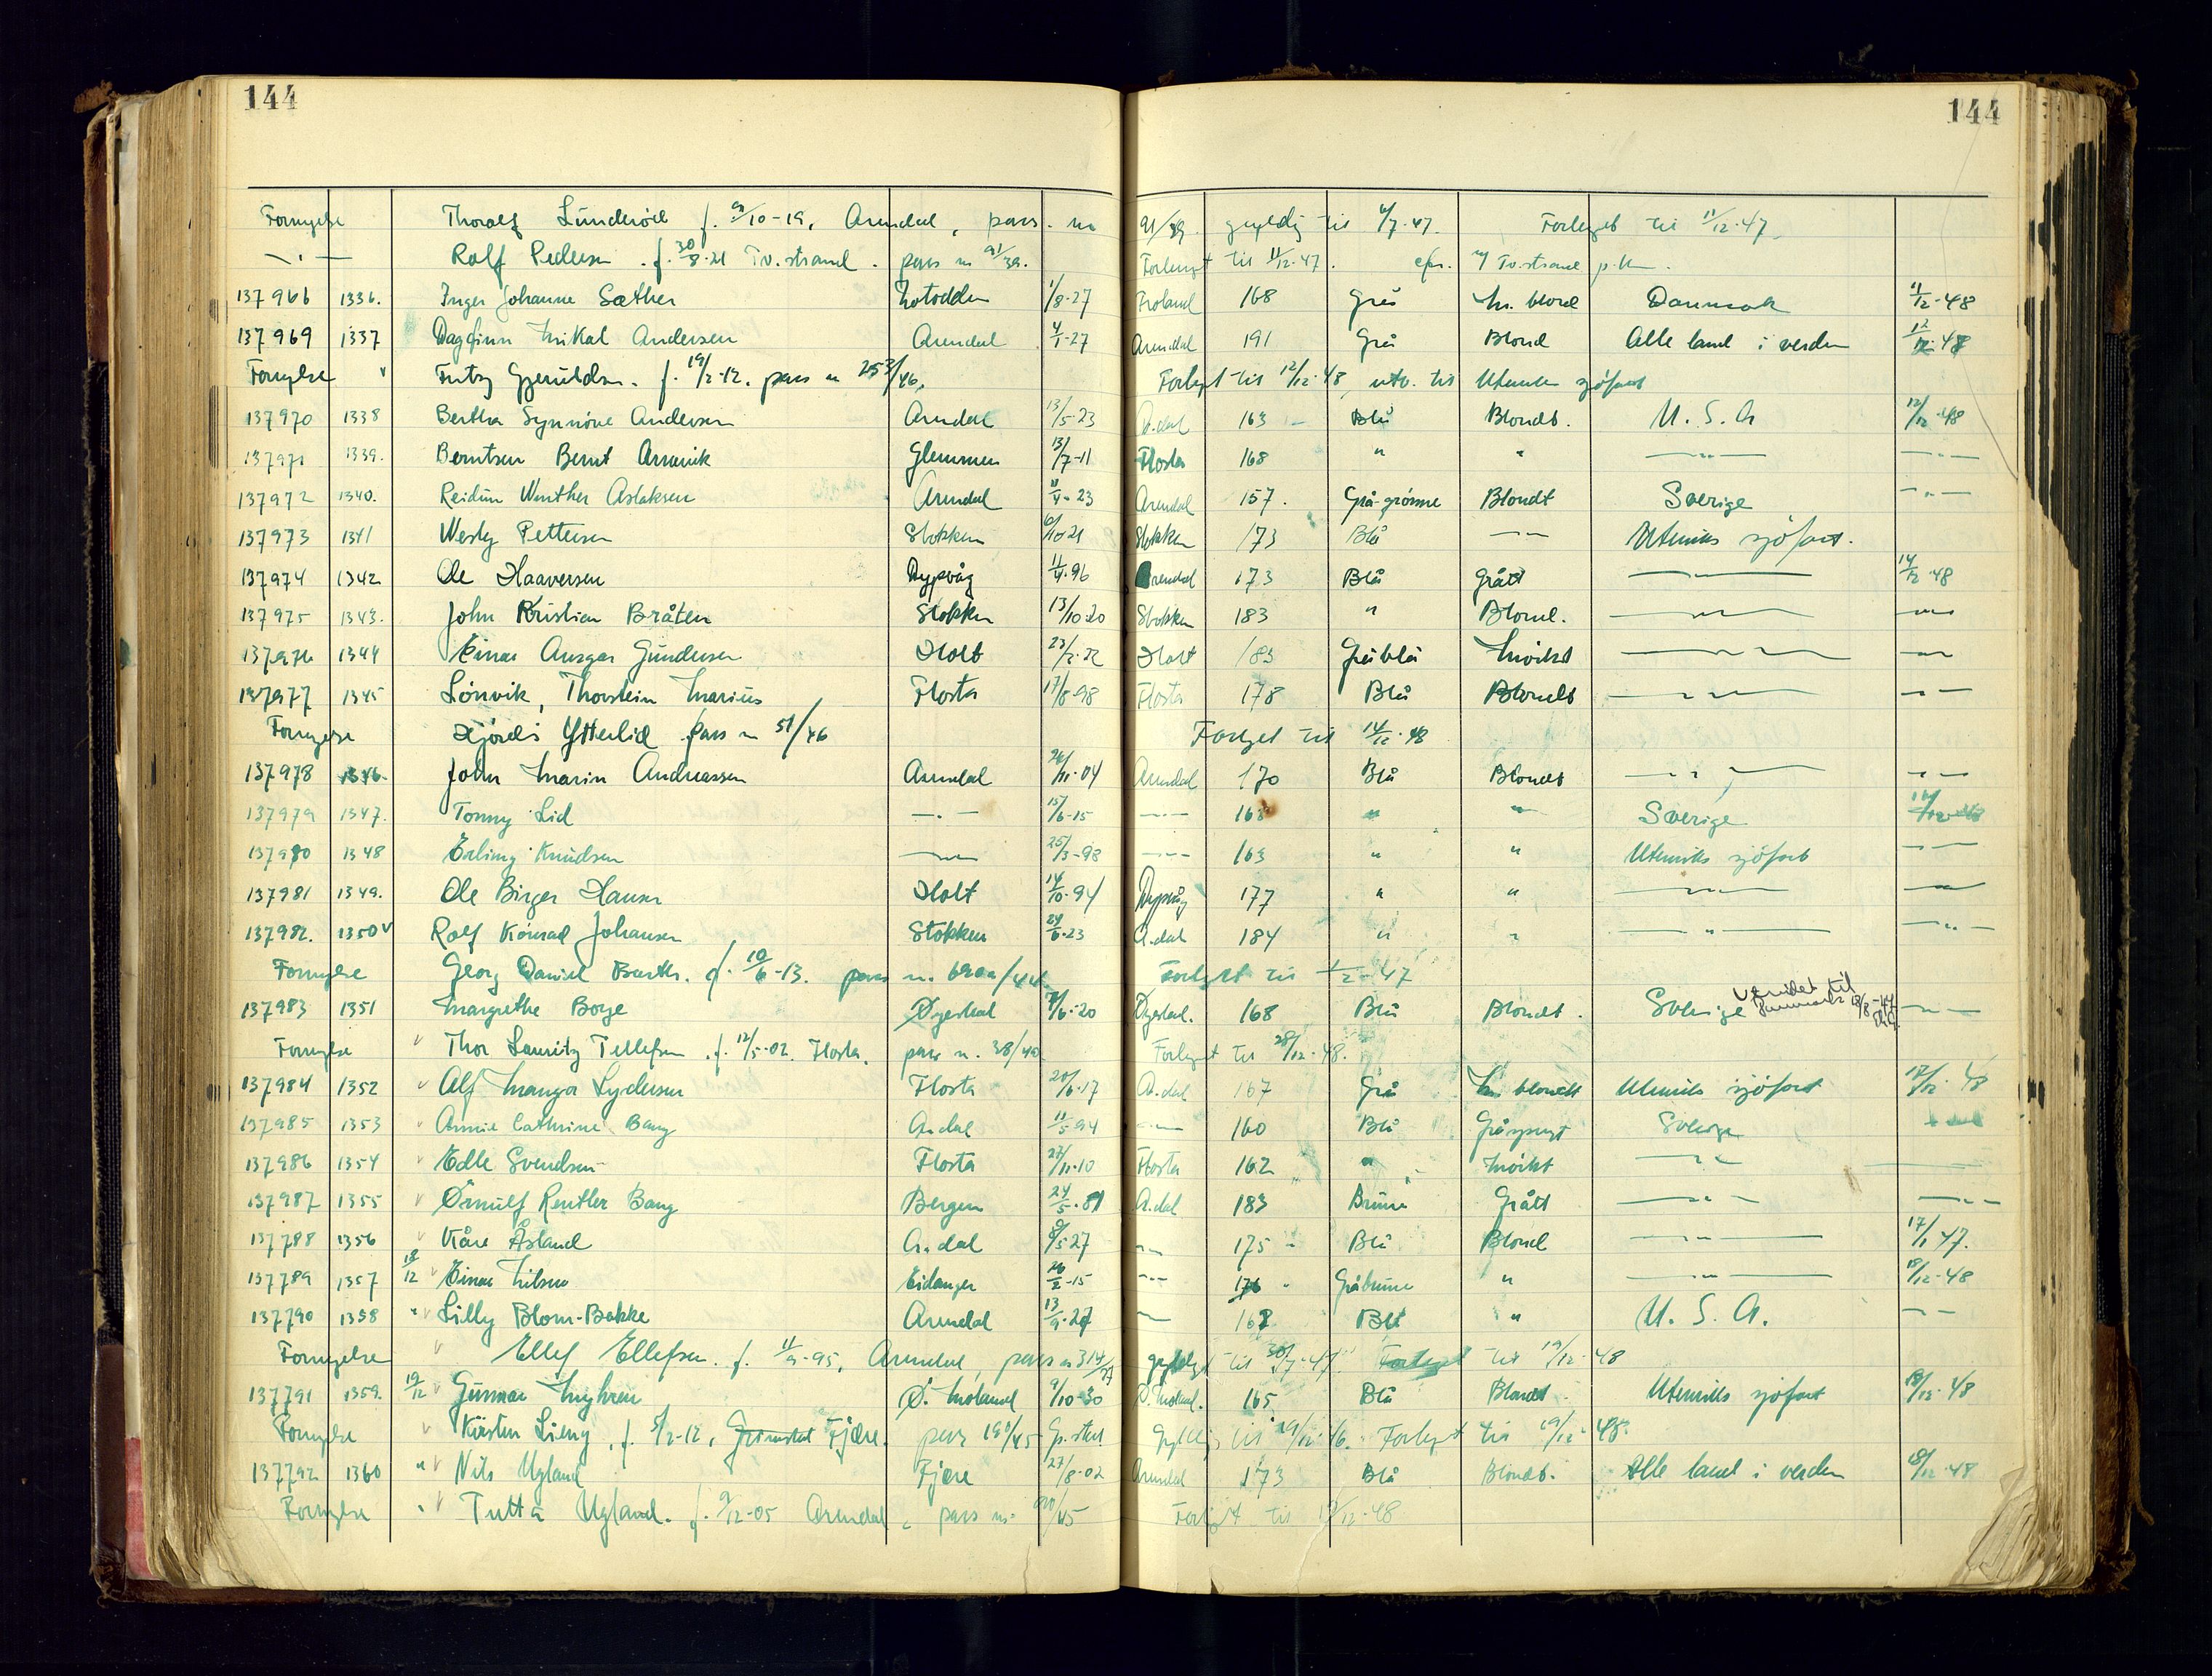 144 144
Fornyelse Thoralf f. /10-19, Arendal, pass nr 91/39 gyldig til 4/7-47. Forlenget til 11/12-47.
—"— Rolf Pedersen f. 30/8-21 Tv.strand. pass nr 91/39. Forlenget til 11/12-47. Tv.strand p.k.
137966 1336. Inger Johanne Sæther Notodden 1/8-27 Froland 168 Grå m. blond Danmark 11/12-48
137969 1337 Dagfinn Mikal Andersen Arendal 4/1-27 Arendal 191 Grå Blond Alle land i verden 12/12-48
Fornyelse v Fritz Gjeruldsen. f. 19/2-12. pass nr 253/46. Forlenget til 12/12-48, utv. til Utenriks sjøfart
137970 1338 Bertha Synnöve Andersen Arendal 13/5-23 A.dal 163 Blå Blondt. U.S.A 12/12-48
137971 1339. Berntsen Bernt Glemmen 13/7-11 Flosta 168 " " —"— —"—
137972 1340. Reidun Winther Aslaksen Arendal 11/4-23 Arendal 157. Grå-grönne Blondt Sverige —"—
137973 1341 Wesly Pettersen Stokken 6/10-21 Stokken 173 Blå —"— Utenriks sjöfart.
137974 1342 Ole Haaversen Dypvåg 11/4-96 Arendal 173 Blå Grått —"— 14/12-48
137975 1343. John Kristian Bråten Stokken 13/10-20 Stokken 183 " Blond. —"— —"—
137976 1344 Einar Ansgar Gundersen Holt 23/2-22 Holt 183 Gråblå Mörkt —"— —"—
137977 1345 Lönvik, Thorstein Marius Flosta 17/8-98 Flosta 178 Blå Blondt —"— —"—
Fornyelse Hjördis Ytterlid pass nr 51/46 Forlenget til 14/12-48
137978 1346. John Marin Andreassen Arendal 26/11-04 Arendal 170 Blå Blondt —"— —"—
137979 1347. Tonny Lid —"— 15/6-15 —"— 168 " " Sverige 14/12-48
137980 1348 Erling Knudsen —"— 25/3-98 —"— 163 " " Utenriks sjöfart —"—
137981 1349. Ole Birger Hansen Holt 14/10-94 Dypvåg 177 " " —"— —"—
137982. 1350 v Rolf Konrad Johansen Stokken 24/6-23 A.dal 184 " " —"— —"—
Fornyelse Georg Daniel Barth. f. 10/6-13. pass nr. Forlenget til 1/2-47
137983 1351 Margrethe Borge Öyestad 7/6-20 Öyestad. 168 Blå Blondt. Sverige utvidet til Danmark 18/8-47 —"—
Fornyelse v Thor Lauritz Tellefsen f. 12/5-02. Flosta. pass nr. 38/40 Forlenget til 28/12-48.
137984 1352 v Alf Lydersen Flosta 20/6-17 A.dal 167 Grå m. blondt Utenriks sjöfart 17/12-48
137985 1353 v Annie Cathrine Bang A.dal 11/5-94 —"— 160 Blå Gråsprengt Sverige
137986 1354 v Edle Svendsen Flosta 27/11-10 Flosta 162 " Mörkt —"—
137987 1355 v Örnulf Bang Bergen 24/5-81 A.dal 183 Brune Grått —"— —"—
137788 1356 v Kåre Åsland A.dal 8/5-27 —"— 175 Blå Blond —"— 17/1-47.
137789 1357 18/12 v Einar Nilsen Eidanger 26/2-15 —"— 176 Gråbrune " —"— 18/12-48
137790 1358 " v Lilly Blom-Bakke Arendal 13/9-27 —"— 167 Blå " U.S.A. —"—
Fornyelse v Ellef Ellefsen. f. 11/9-95, Arendal, pass nr 314/ gyldig til 30/7-47. Forlenget til 19/12-48
137791 1359. 19/12 v Gunnar Myhren Ö. Moland 9/10-30 Ö. Moland. 165 Blå Blondt. Utenriks sjöfart 19/12-48
Fornyelse v Kirsten Lieng, f. 5/2-12, Grimstad Fjære. pass 191/45 Gr.stad. Gyldig til 19/12-46. Forlenget til 19/12-48.
137792 1360 " v Nils Ugland Fjære 27/8-02 Arendal 173 Blå Blondt. Alle land i verden 19/12-48
Fornyelse " v Tutta Ugland. f. 9/12-05 Arendal, pass nr. /45 Forlenget til 19/12-48